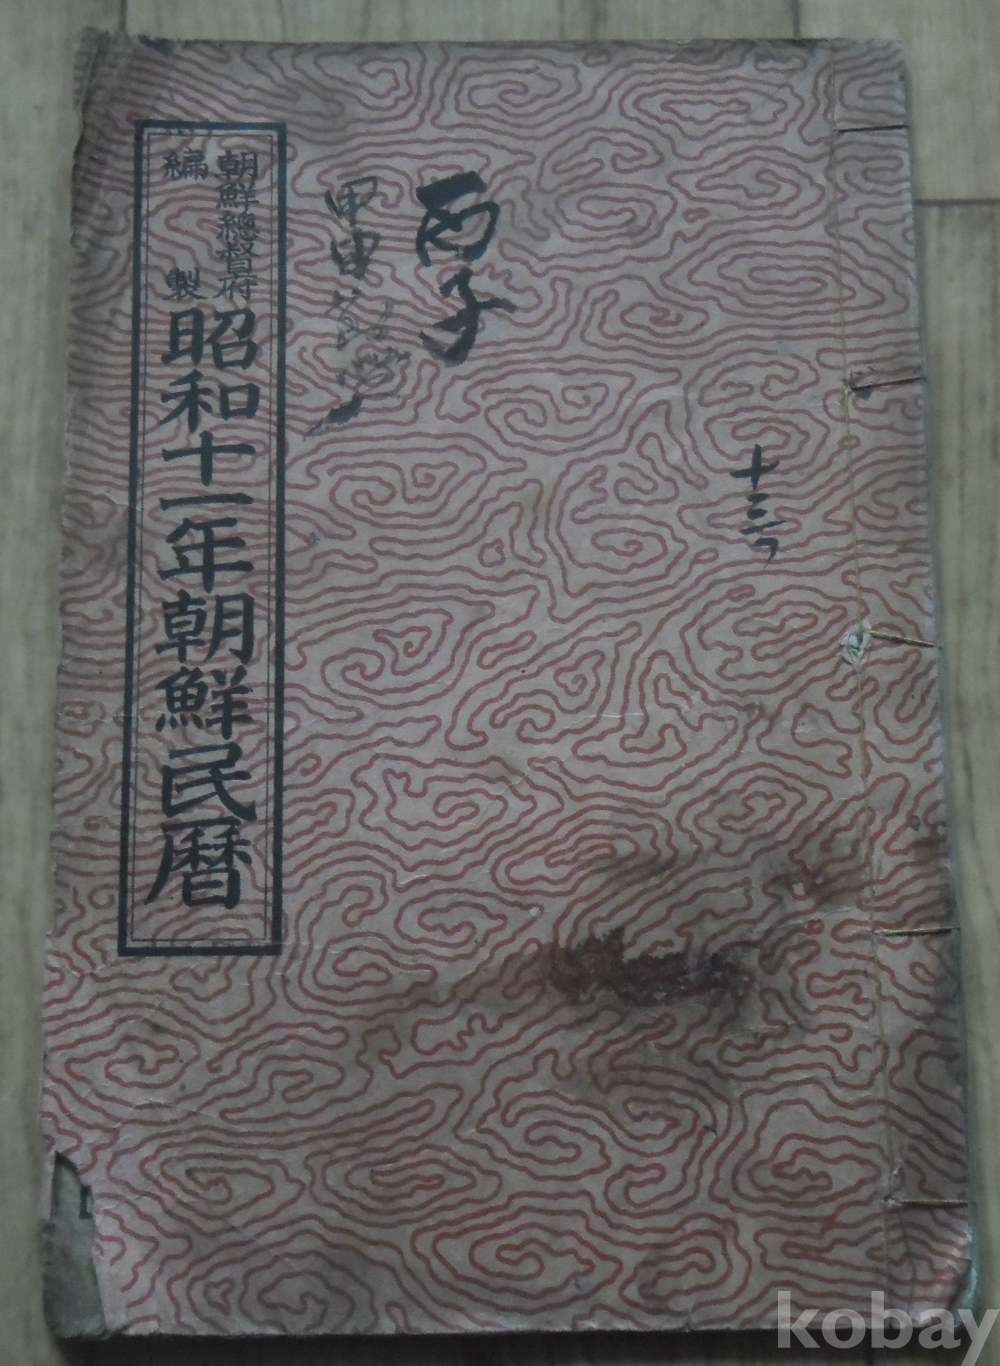 丙子
十三
朝鮮總督府
編製
昭和十一年朝鮮民曆
kobay